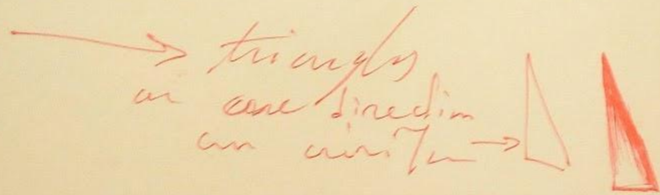 triangles
in one direction
an